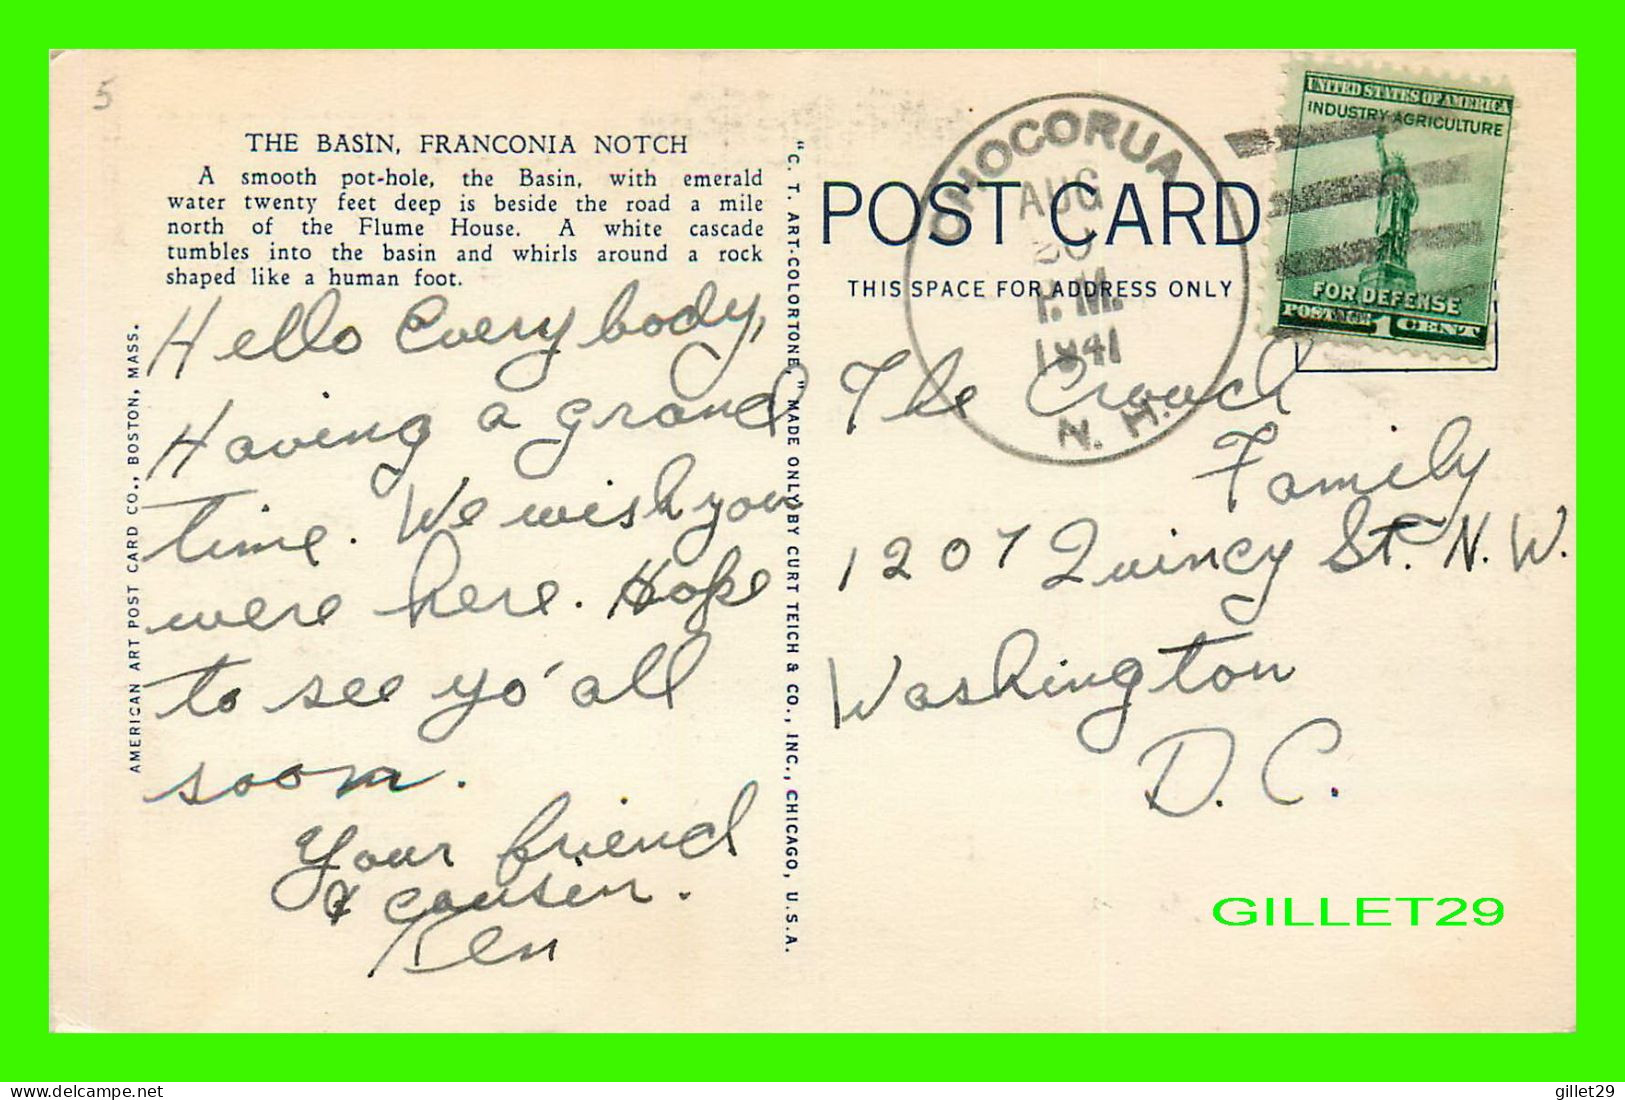 5
THE BASIN, FRANCONIA NOTCH
A smooth pot-hole, the Basin, with emerald
water twenty feet deep is beside the road a mile
north of the Flume House. A white cascade
tumbles into the basin and whirls around a rock
shaped like a human foot.
Hello Everybody,
Having a grand
time. We wish you
were here. Hope
to see yo' all
soon.
Your friend
& cousin.
Ken
AMERICAN ART POST CARD CO., BOSTON, MASS.
"C. T. ART-COLORTONE," MADE ONLY BY CURT TEICH & CO., INC., CHICAGO, U.S.A.
POST CARD
THIS SPACE FOR ADDRESS ONLY
CHOCORUA
AUG
P.M.
1941
N. H.
UNITED STATES OF AMERICA
INDUSTRY AGRICULTURE
FOR DEFENSE
POSTAGE 1 CENT
The Crouch
Family
1207 Quincy St. N. W.
Washington
D. C.
GILLET29
gillet29